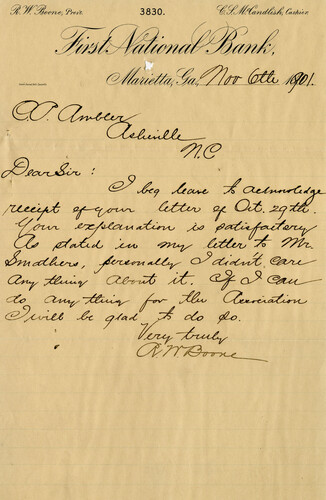 R. W. Boone, Prest. 3830. C. S. McCandlish, Cashier
First National Bank,
Marietta, Ga, Nov 6th 1901.
C.P. Ambler
Asheville
N.C
Dear Sir :
I beg leave to acknowledge
receipt of your letter of Oct. 29th.
Your explanation is satisfactory
As stated in my letter to Mr
Smathers, personally I didn't care
any thing about it. If I can
do any thing for the Association
I will be glad to do so.
Very truly
R W Boone